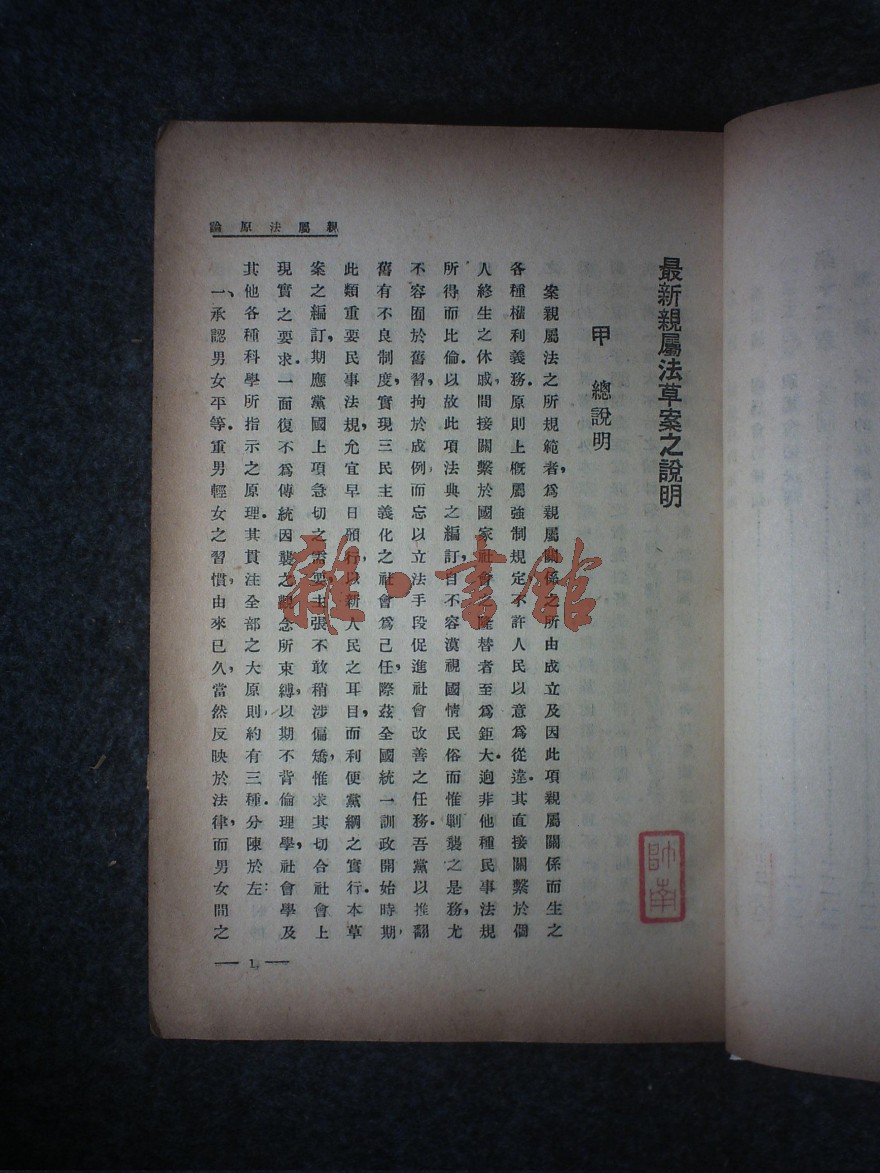 最新親屬法草案之說明
甲 總說明
案親屬法之所規範者,爲親屬關係之所由成立及因此項親屬關係而生之
各種權利義務.原則上槪屬強制規定,不許人民以意爲從違.其直接關繫於個
人終生之休戚,間接關繫於國家社會之隆替者至爲鉅大.迥非他種民事法規
所得而比倫.以故此項法典之編訂,自不容漠視國情民俗而惟剿襲之是務,尤
不容囿於舊習,拘於成例,而忘以立法手段促進社會改善之任務.吾黨以推翻
舊有不良制度,實現三民主義化之社會爲己任,際茲全國統一訓政開始時期,
此類重要民事法規,允宜早日頒行,以新人民之耳目,而利便黨綱之實行.本草
案之編訂,期應黨國上項急切之需要,主張不敢稍涉偏矯,惟求其切合社會上
現實之要求.一面復不爲傳統因襲之觀念所束縛,以期不背倫理學,社會學及
其他各種科學所指示之原理.其貫注全部之大原則,約有三種.分陳於左:
一、承認男女平等.重男輕女之習慣,由來已久,當然反映於法律,而男女間之
親屬法原論
— 1 —
雜·書館